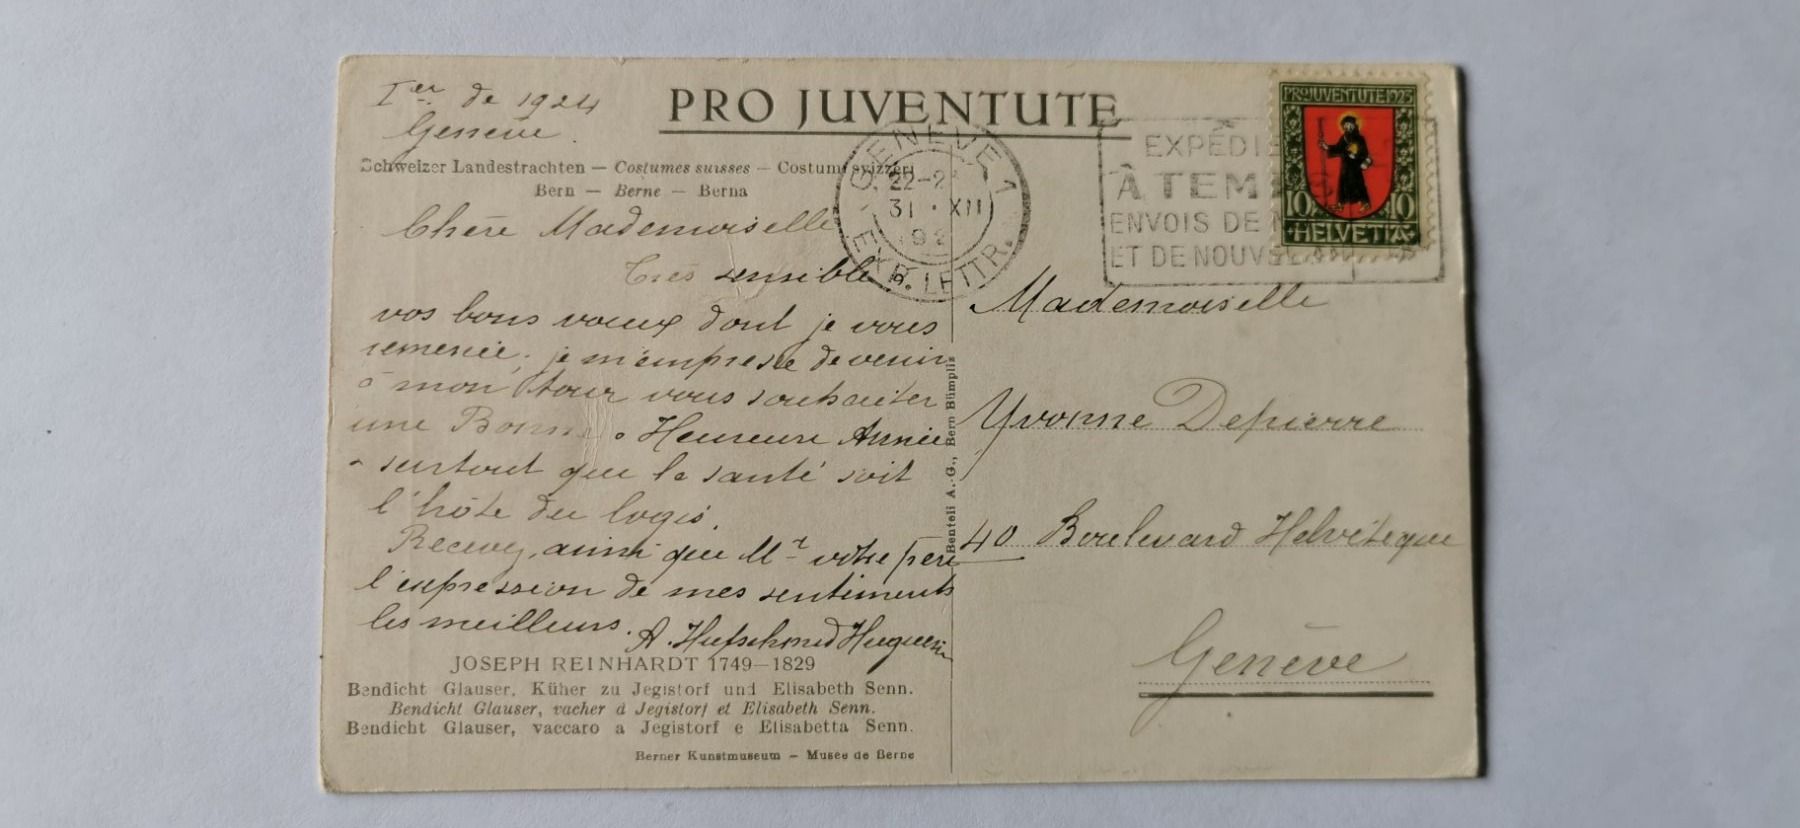 Ier de 1924
Genève.
PRO JUVENTUTE
Schweizer Landestrachten — Costumes suisses — Costumi svizzeri
Bern — Berne — Berna
Chère Mademoiselle
Très sensible
vos bons vœux dont je vous
remercie, je m'empresse de venir
à mon tour vous souhaiter
une Bonne Heureuse Année
surtout que la santé soit
l'hôte du logis.
Recevez, ainsi que Mr votre père
l'expression de mes sentiments
les meilleurs.
A. Hufschmid Huguenin
JOSEPH REINHARDT 1749—1829
Bendicht Glauser, Küher zu Jegistorf und Elisabeth Senn.
Bendicht Glauser, vacher à Jegistorf et Elisabeth Senn.
Bendicht Glauser, vaccaro a Jegistorf e Elisabetta Senn.
Berner Kunstmuseum — Musée de Berne
Benteli A.-G., Bern Bümpliz
GENÈVE 1
31 · XII
EXP. LETTR.
À TEM
ENVOIS DE
ET DE NOUVEL AN
PRO JUVENTUTE 1923
10 10
HELVETIA
Mademoiselle
Yvonne Depierre
40 Boulevard Helvétique
Genève